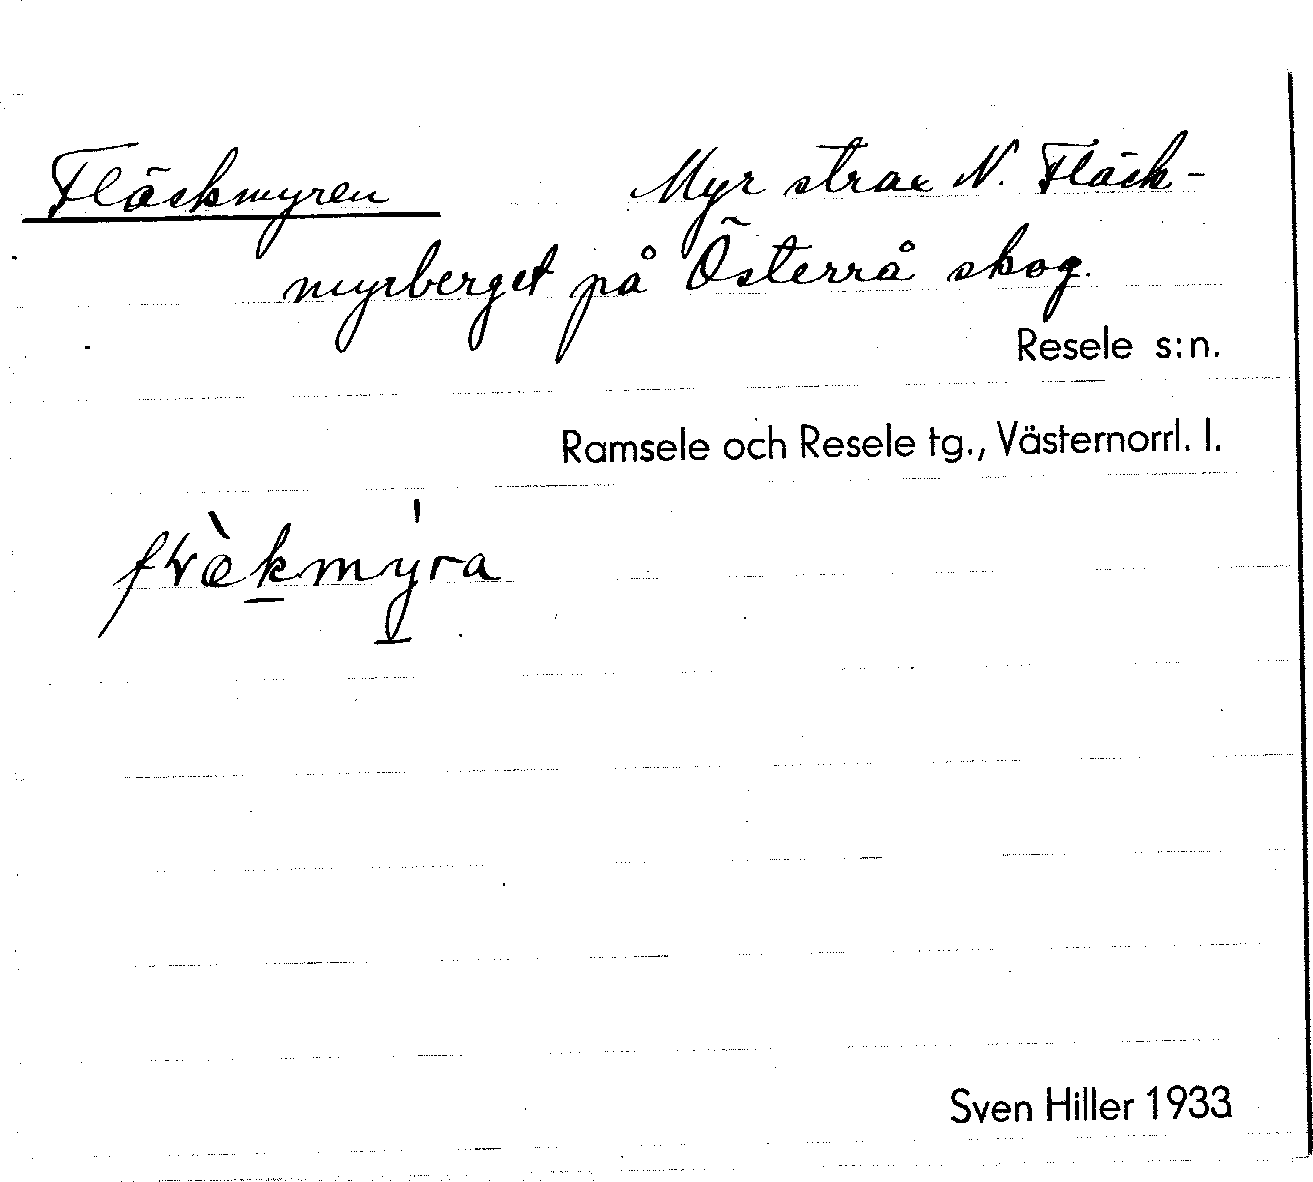 Fläckmyren Myr strax N. Fläck-
myrberget på Österrå skog.
Resele s:n.
Ramsele och Resele tg., Västernorrl. l.
Sven Hiller 1933